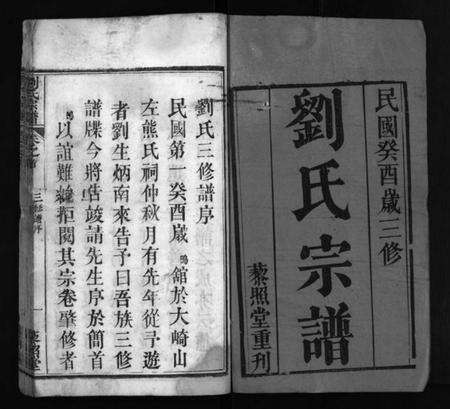 民國癸酉歲三修
劉氏宗譜
藜照堂重刊
劉氏三修譜序
民國第一癸酉歲鳴館於大崎山
左熊氏祠仲秋月有先年從予遊
者劉生炳南來告予曰吾族三修
譜牒今將告竣請先生序於簡首
鳴以誼難維拒閱其宗卷肇修者
劉氏宗譜
卷之首
三修譜序
一
藜照堂